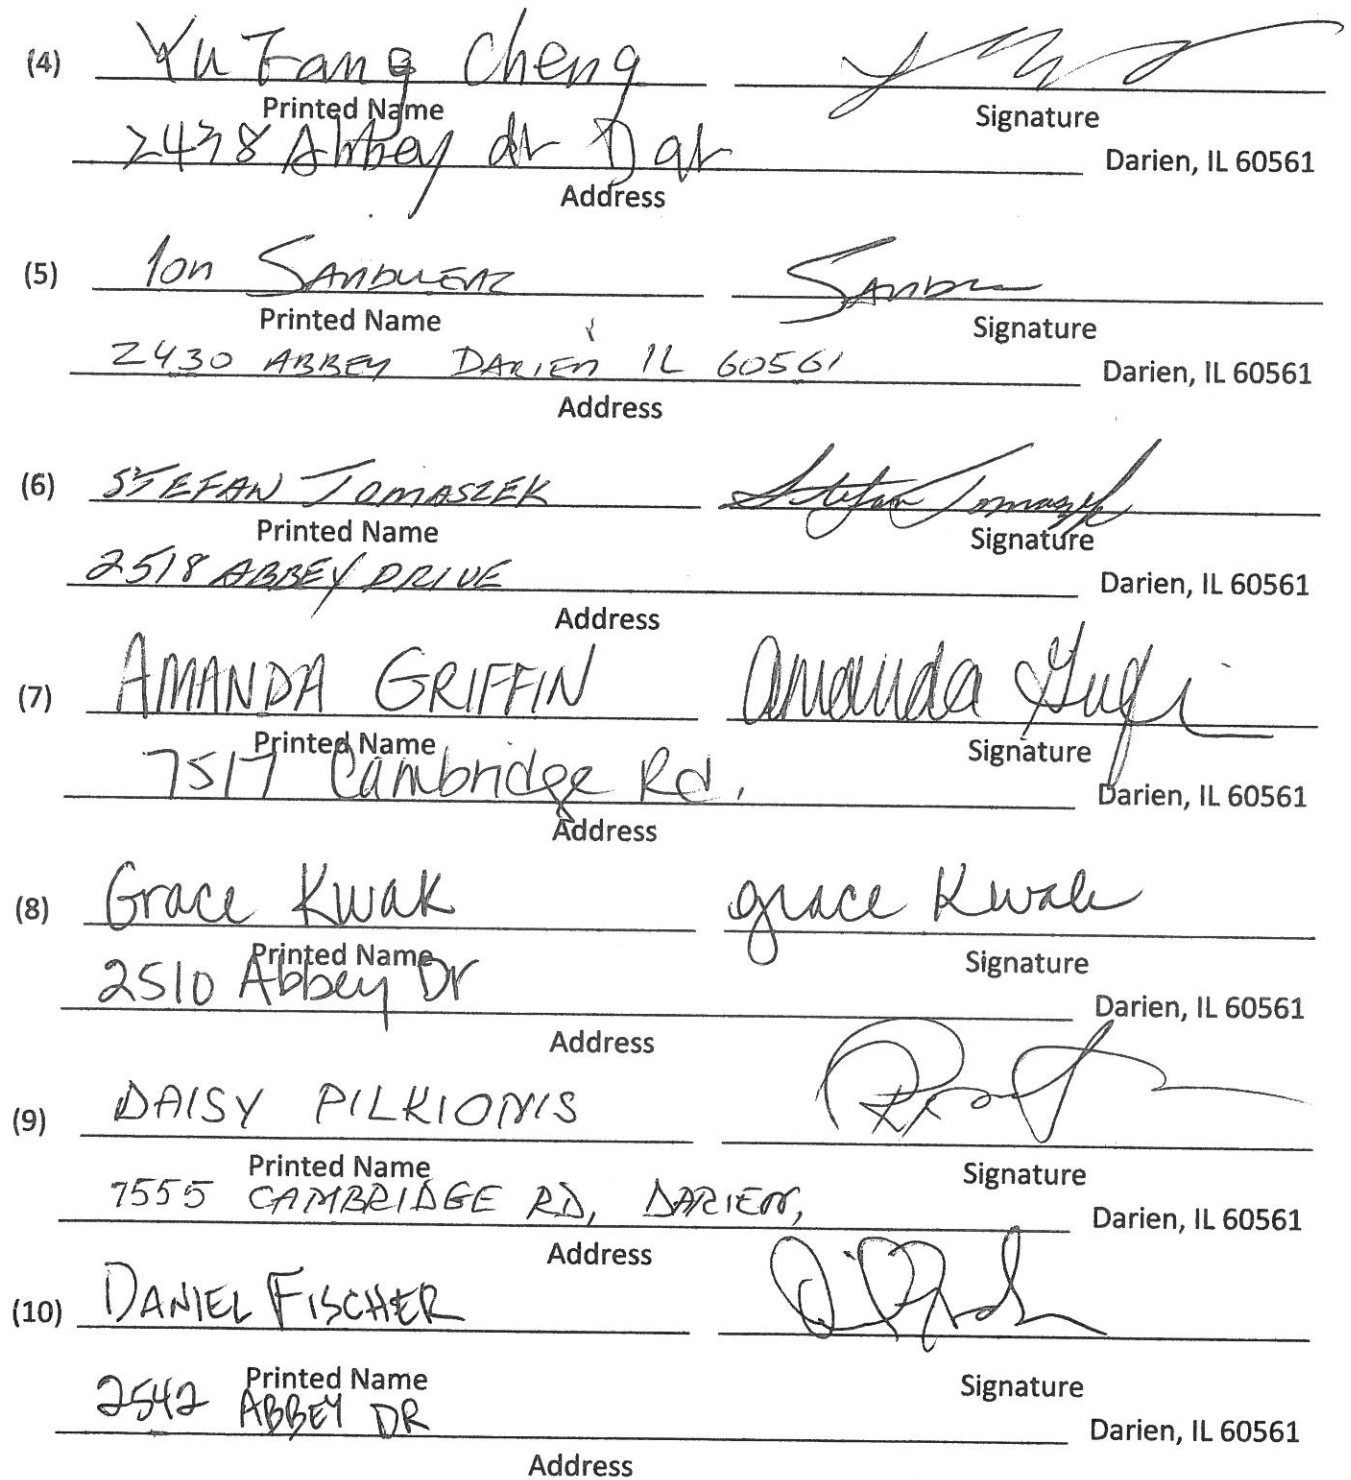 (4) Yu Fang Cheng
Printed Name Signature
2438 Abbey dr Dar Darien, IL 60561
Address
(5) Ion SANDULEAC Sandu
Printed Name Signature
2430 ABBEY DARIEN IL 60561 Darien, IL 60561
Address
(6) STEFAN TOMASZEK Stefan Tomaszek
Printed Name Signature
2518 ABBEY DRIVE Darien, IL 60561
Address
(7) AMANDA GRIFFIN Amanda
Printed Name Signature
7517 Cambridge Rd. Darien, IL 60561
Address
(8) Grace Kwak grace Kwak
Printed Name Signature
2510 Abbey Dr Darien, IL 60561
Address
(9) DAISY PILKIONIS
Printed Name Signature
7555 CAMBRIDGE RD, DARIEN, Darien, IL 60561
Address
(10) DANIEL FISCHER
Printed Name Signature
2542 ABBEY DR Darien, IL 60561
Address